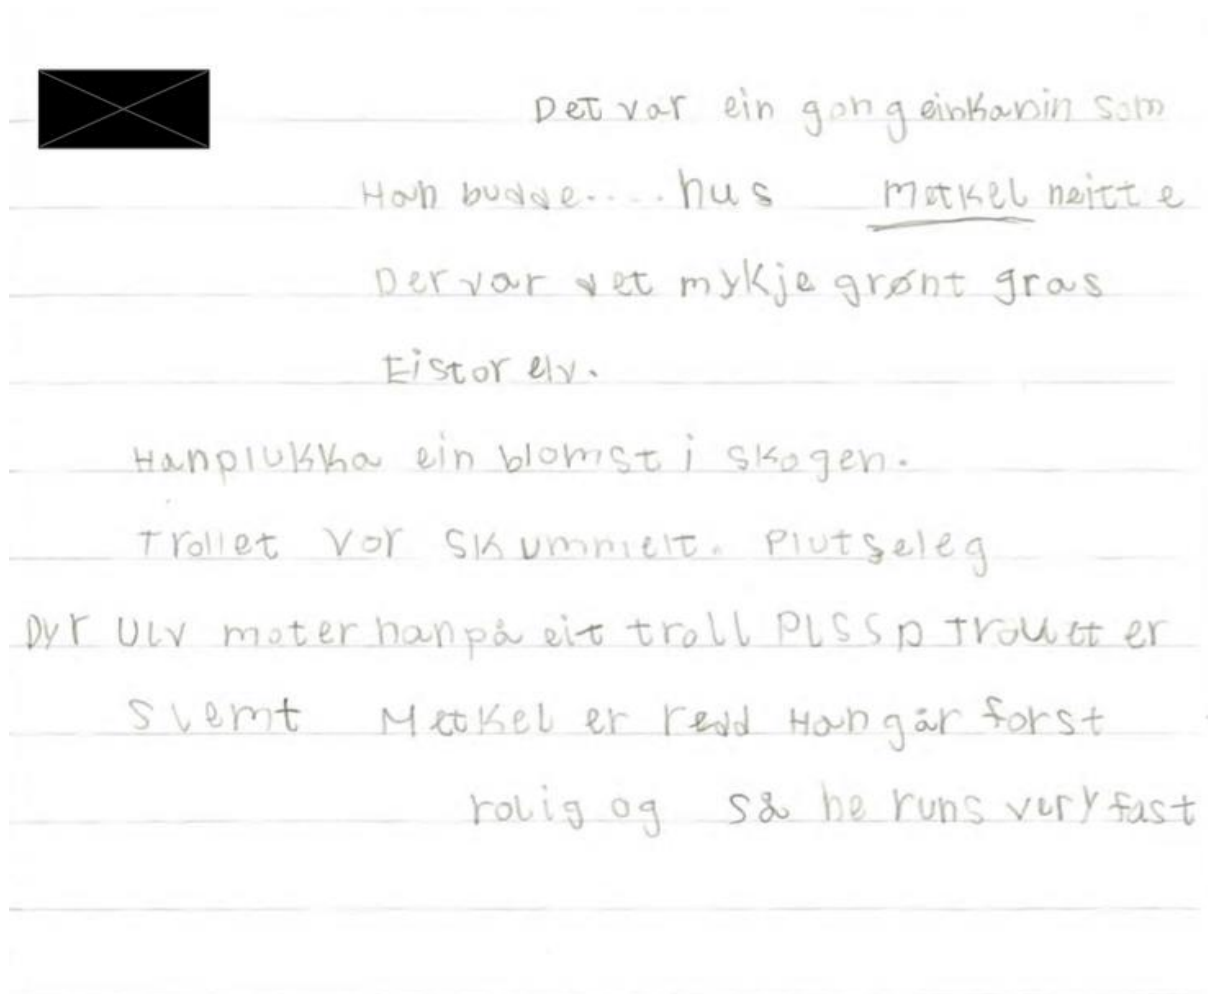 Det var ein gong einkanin som
Han budde.... hus Metkel neitte
Der var det mykje grønt gras
Eistor elv.
Hanplukka ein blomst i skogen.
Trollet var skummelt. Plutseleg
Dyr Ulv moter hanpå eit troll PLSSP Trollet er
slemt Metkel er redd Han går forst
rolig og så he runs very fast